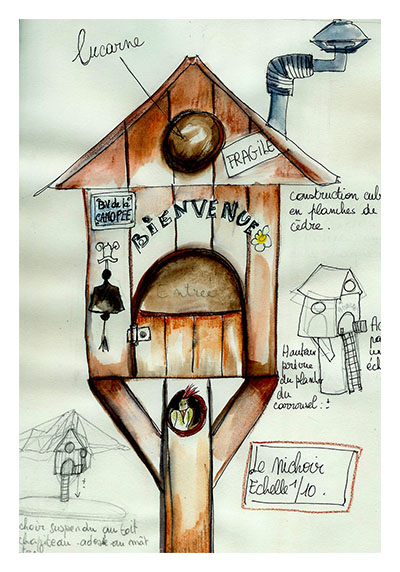 Lucarne
FRAGILE
Bd de la
CANOPÉE
BIENVENUE
construction cub
en planches de
cèdre.
Entrée
Hauteur
prévue
du plancher
du
carrousel.
Le Nichoir
Echelle 1/10.
choir suspendu au toit
chapiteau. adossé au mât